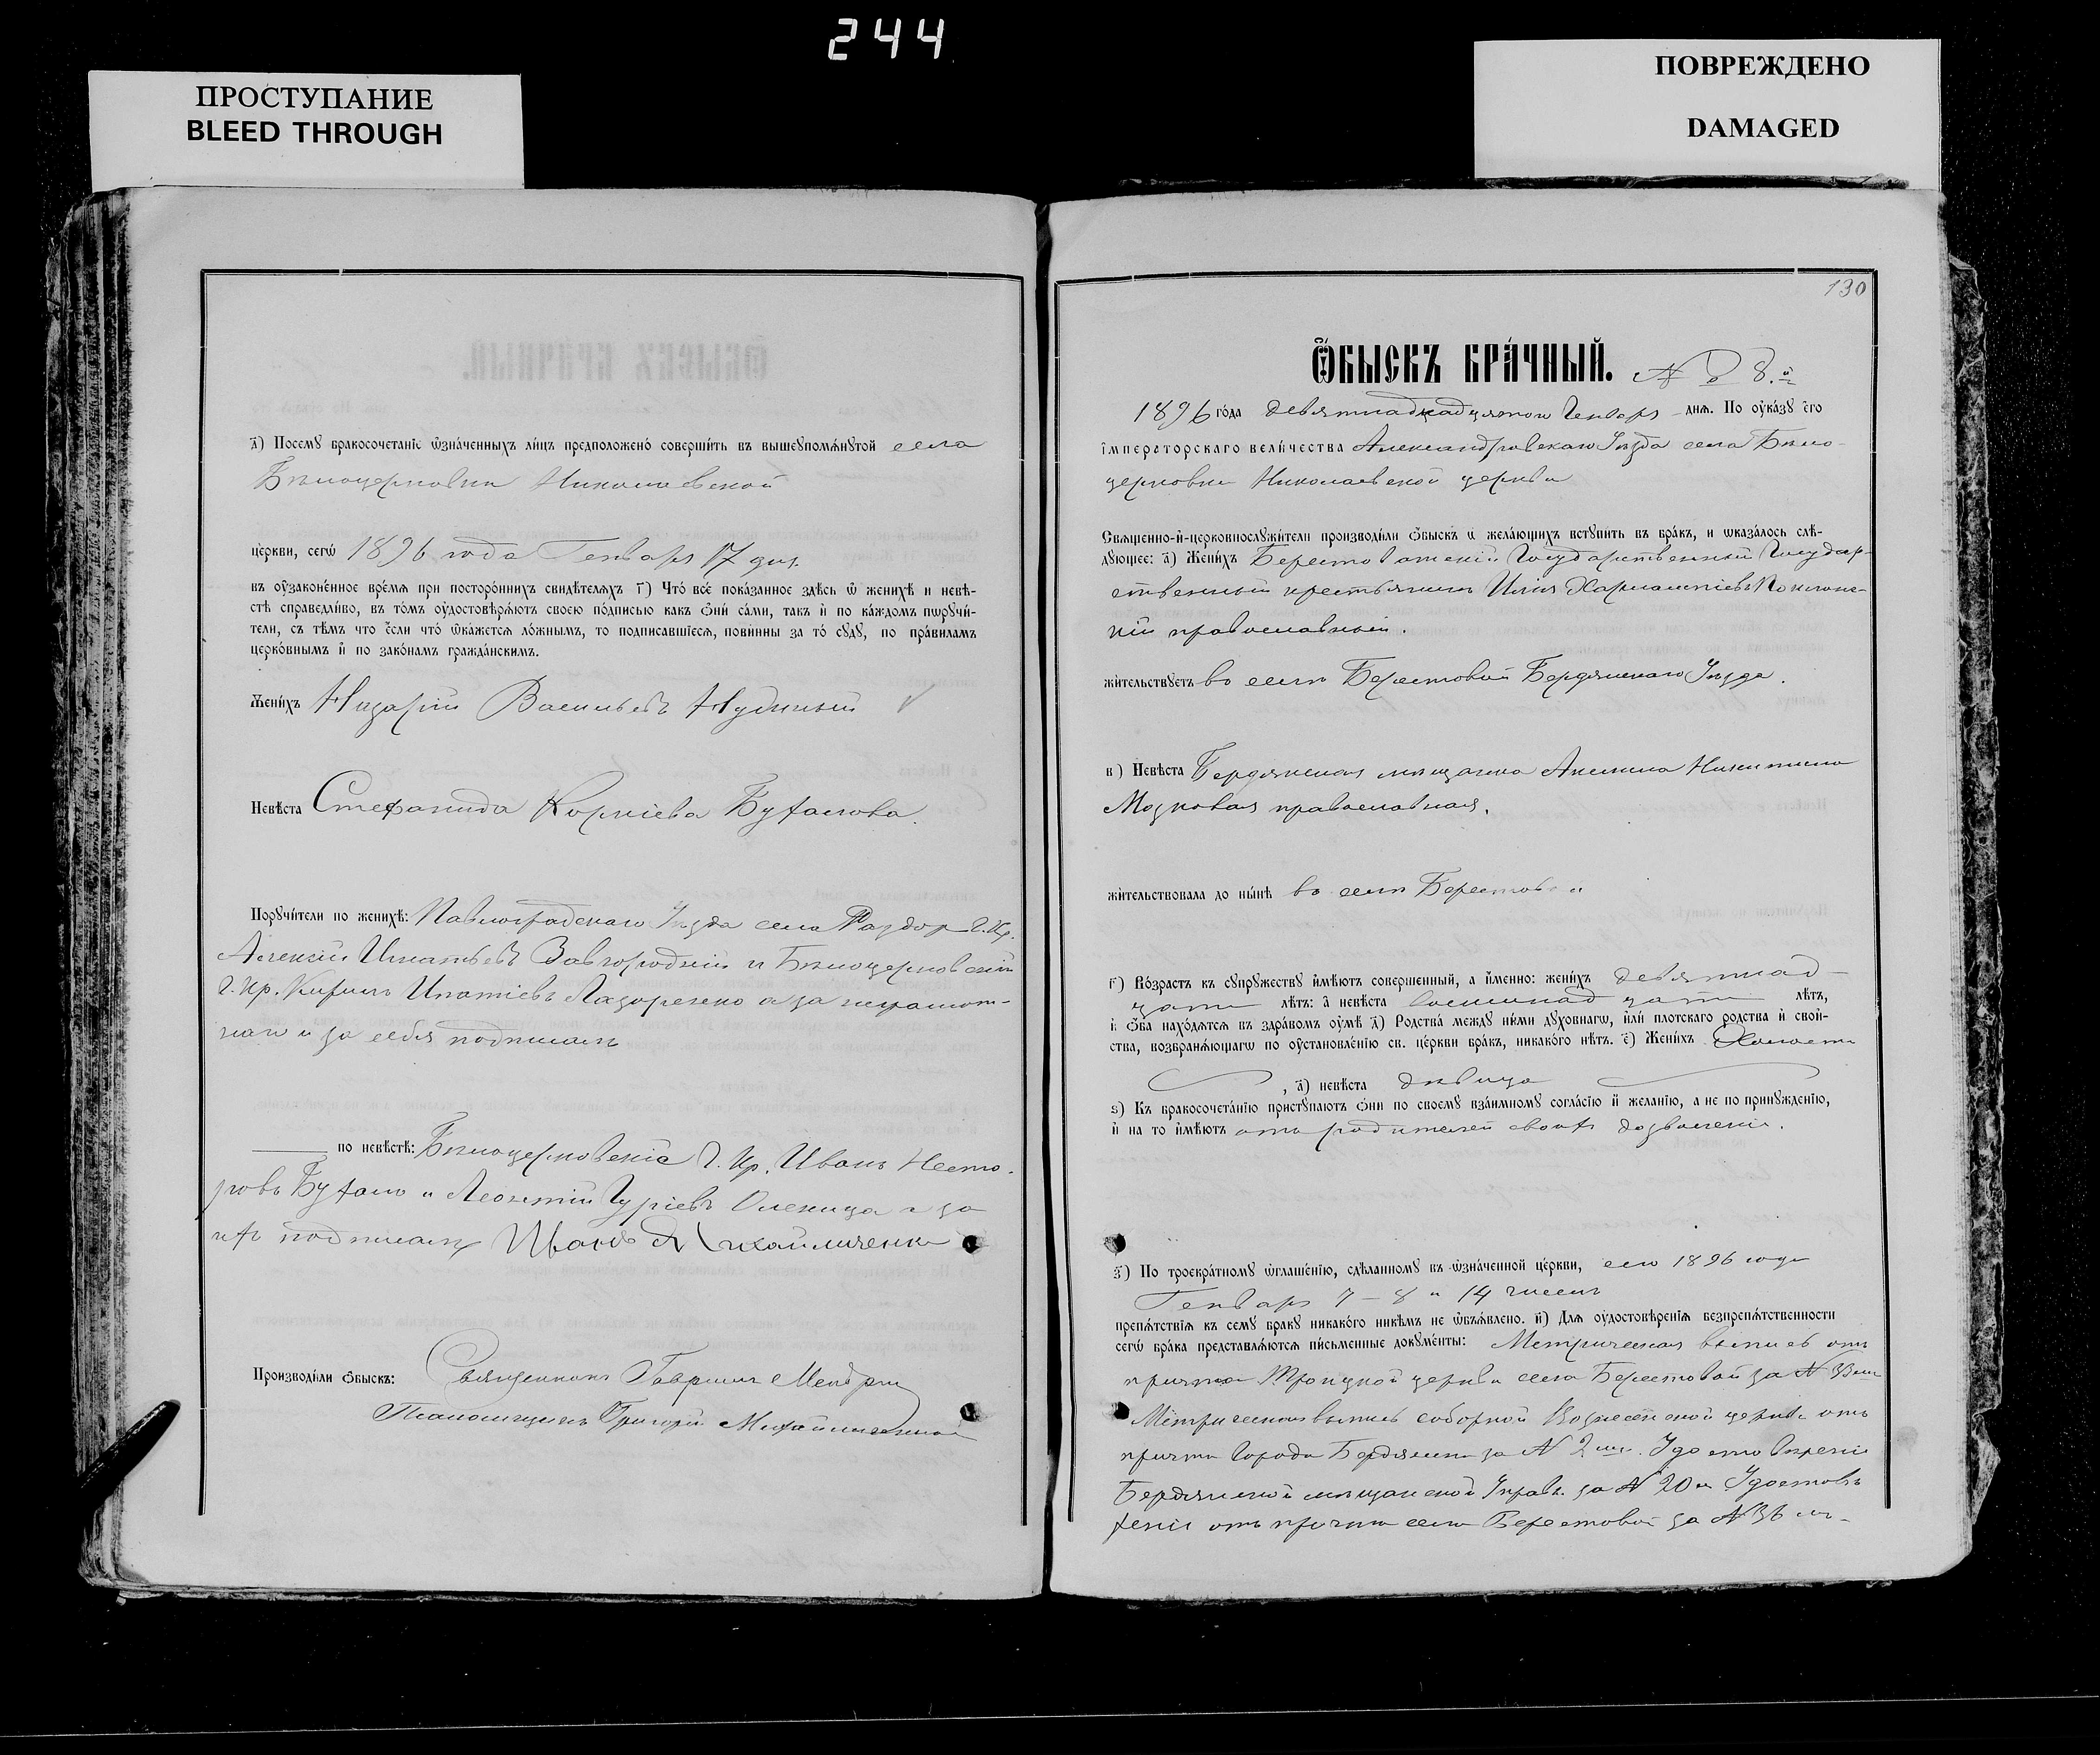 244
ПРОСТУПАНИЕ
BLEED THROUGH
ПОВРЕЖДЕНО
DAMAGED
д҃) Посемꙋ бракосочетанїе ѡзначенныхъ лицъ предположено совершить въ вышеꙋпомѧнꙋтой села
Бѣлоцерковки Николаевской
церкви, сегѡ 1896 года Генваря 17 дня.
въ оу҆законенное времѧ при постороннихъ свидѣтелѧхъ г҃) Что все показанное здѣсь ѡ женихѣ и невѣ-
стѣ справедливо, въ томъ оу҆достовѣрѧютъ своею подписью какъ ѻни сами, такъ и по каждомъ порꙋчи-
тели, съ тѣмъ что если что ѡкажетсѧ ложнымъ, то подписавшїесѧ, повинны за то сꙋдꙋ, по правиламъ
церковнымъ и по законамъ гражданскимъ.
Женихъ Назарій Васильевъ Нудный
Невѣста Стефанида Корніева Бухалова.
Порꙋчители по женихѣ: Павлоградскаго Уѣзда села Раздор Г. Кр.
Алексій Игнатьевъ Завгородній и Бѣлоцерковскій
Г. Кр. Кирилъ Ипатіевъ Лазоренко а за неграмот-
наго и за себя подписалъ
по невѣстѣ: Бѣлоцерковскіе Г. Кр. Иванъ Несто-
ровъ Бухало и Леонтій Гуріевъ Олекица а за
ихъ подписалъ Иванъ Михайличенко
Производили ѻбыскъ: Священникъ Гавриилъ
Псаломщикъ Григорій Михайличенко
130
Ѻбыскъ брачный. № 8.й
1896 года девятнадцатого Генваря днѧ. По оуказꙋ его
їмператорскаго величества Александровскаго Уѣзда села Бѣло-
церковки Николаевской церкви
Свѧщенно-и-церковнослꙋжители производили ѻбыскъ ѡ желающихъ встꙋпить въ бракъ, и ѡказалось слѣ-
дꙋющее: а҃) Женихъ Берестоватскій Государственный Государ-
ственный крестьянинъ Илія Харлампіевъ
кій православный.
жительствꙋетъ во селѣ Берестовой Бердянскаго Уѣзда.
в҃) Невѣста Бердянская мѣщанка Акилина Никитина
Мозковая православная.
жительствовала до нынѣ во селѣ Берестовой
г҃) Возрастъ къ сꙋпрꙋжествꙋ имѣютъ совершенный, а именно: женихъ девятнад-
цати лѣтъ: а невѣста восемнадцати лѣтъ,
и ѻба находѧтсѧ въ здравомъ оумѣ д҃) Родства междꙋ ними дꙋховнагѡ, или плотскаго родства и свой-
ства, возбранѧющагѡ по оустановленїю св. церкви бракъ, никакого нѣтъ. е҃) Женихъ Холостъ
, а҃) невѣста дѣвица
ѕ҃) Къ бракосочетанїю пристꙋпаютъ ѻни по своемꙋ взаимномꙋ согласїю и желанїю, а не по принꙋжденїю,
и на то имѣютъ отъ родителей своихъ дозволеніе.
з҃) По троекратномꙋ ѡглашенїю, сдѣланномꙋ въ ѡзначенной церкви, сего 1896 года
Генваря 7 – 8 и 14 чиселъ
препѧтствїѧ къ семꙋ бракꙋ никакого никѣмъ не ѡбъѧвлено. и҃) Длѧ оудостовѣренїѧ безпрепѧтственности
сегѡ брака представлѧютсѧ письменные докꙋменты: Метрическая выпись отъ
причта Троицкой церкви села Берестовой за №
Метрическая выпись соборной Вознесенской церкви отъ
причта города Бердянска за № 2 Удостовѣреніе
Бердянской мѣщанской Управы за № 20 и Удостовѣ
реніе отъ причта села Берестовой за № 36